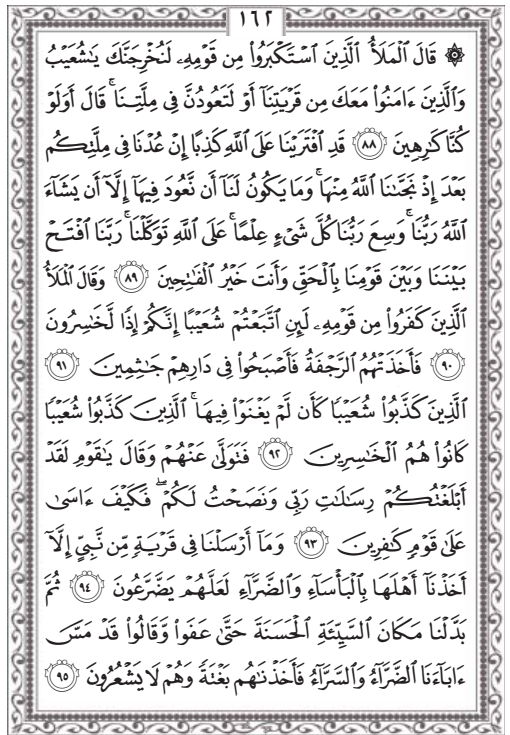 ١٦٢
۞ قَالَ ٱلْمَلَأُ ٱلَّذِينَ ٱسْتَكْبَرُوا۟ مِن قَوْمِهِۦ لَنُخْرِجَنَّكَ يَـٰشُعَيْبُ
وَٱلَّذِينَ ءَامَنُوا۟ مَعَكَ مِن قَرْيَتِنَآ أَوْ لَتَعُودُنَّ فِى مِلَّتِنَا ۚ قَالَ أَوَلَوْ
كُنَّا كَـٰرِهِينَ ٨٨ قَدِ ٱفْتَرَيْنَا عَلَى ٱللَّهِ كَذِبًا إِنْ عُدْنَا فِى مِلَّتِكُم
بَعْدَ إِذْ نَجَّىٰنَا ٱللَّهُ مِنْهَا ۚ وَمَا يَكُونُ لَنَآ أَن نَّعُودَ فِيهَآ إِلَّآ أَن يَشَآءَ
ٱللَّهُ رَبُّنَا ۚ وَسِعَ رَبُّنَا كُلَّ شَىْءٍ عِلْمًا ۚ عَلَى ٱللَّهِ تَوَكَّلْنَا ۚ رَبَّنَا ٱفْتَحْ
بَيْنَنَا وَبَيْنَ قَوْمِنَا بِٱلْحَقِّ وَأَنتَ خَيْرُ ٱلْفَـٰتِحِينَ ٨٩ وَقَالَ ٱلْمَلَأُ
ٱلَّذِينَ كَفَرُوا۟ مِن قَوْمِهِۦ لَئِنِ ٱتَّبَعْتُمْ شُعَيْبًا إِنَّكُمْ إِذًا لَّخَـٰسِرُونَ
٩٠ فَأَخَذَتْهُمُ ٱلرَّجْفَةُ فَأَصْبَحُوا۟ فِى دَارِهِمْ جَـٰثِمِينَ ٩١
ٱلَّذِينَ كَذَّبُوا۟ شُعَيْبًا كَأَن لَّمْ يَغْنَوْا۟ فِيهَا ۚ ٱلَّذِينَ كَذَّبُوا۟ شُعَيْبًا
كَانُوا۟ هُمُ ٱلْخَـٰسِرِينَ ٩٢ فَتَوَلَّىٰ عَنْهُمْ وَقَالَ يَـٰقَوْمِ لَقَدْ
أَبْلَغْتُكُمْ رِسَـٰلَـٰتِ رَبِّى وَنَصَحْتُ لَكُمْ ۖ فَكَيْفَ ءَاسَىٰ
عَلَىٰ قَوْمٍ كَـٰفِرِينَ ٩٣ وَمَآ أَرْسَلْنَا فِى قَرْيَةٍ مِّن نَّبِىٍّ إِلَّآ
أَخَذْنَآ أَهْلَهَا بِٱلْبَأْسَآءِ وَٱلضَّرَّآءِ لَعَلَّهُمْ يَضَّرَّعُونَ ٩٤ ثُمَّ
بَدَّلْنَا مَكَانَ ٱلسَّيِّئَةِ ٱلْحَسَنَةَ حَتَّىٰ عَفَوا۟ وَّقَالُوا۟ قَدْ مَسَّ
ءَابَآءَنَا ٱلضَّرَّآءُ وَٱلسَّرَّآءُ فَأَخَذْنَـٰهُم بَغْتَةً وَهُمْ لَا يَشْعُرُونَ ٩٥